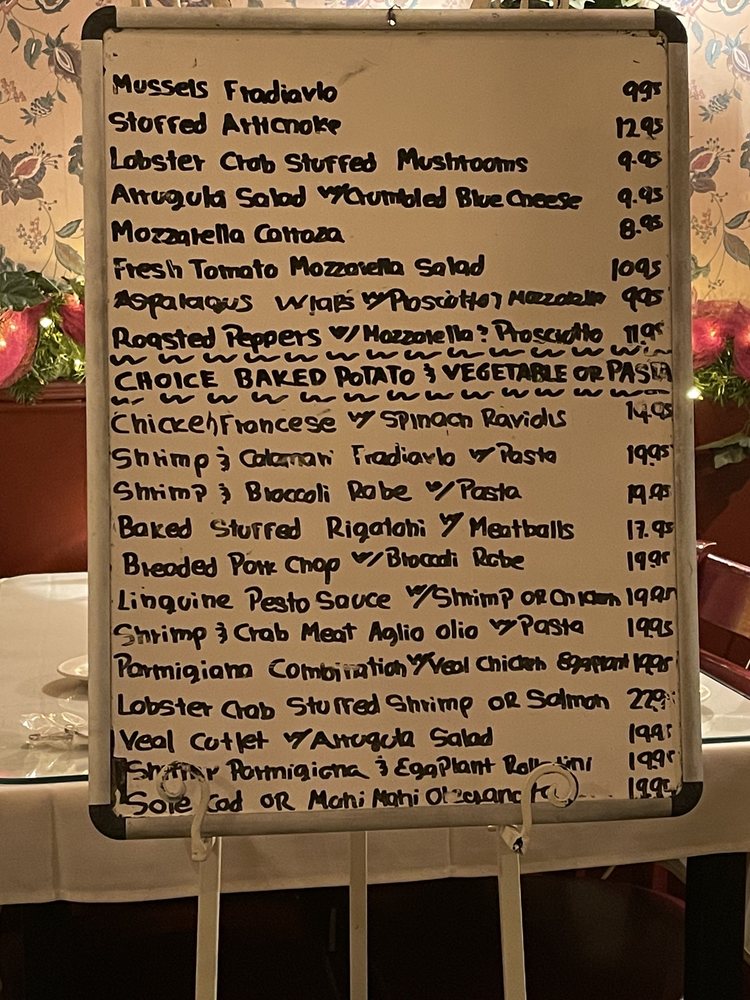 Mussels Fradiavlo 9.95
Stuffed Artichoke 12.95
Lobster Crab Stuffed Mushrooms 9.95
Arrugula Salad w/Crumbled Blue Cheese 9.95
Mozzarella Carroza 8.95
Fresh Tomato Mozzarella Salad 10.95
Asparagus Wraps w/Prosciotto & Mozzarella 9.95
Roasted Peppers w/Mozzarella & Prosciotto 11.95
CHOICE BAKED POTATO & VEGETABLE OR PASTA
Chicken Francese w/ Spinach Raviolis 19.95
Shrimp & Calamari Fradiavlo w/ Pasta 19.95
Shrimp & Broccoli Rabe w/Pasta 19.95
Baked Stuffed Rigatoni w/ Meatballs 17.95
Breaded Pork Chop w/Broccoli Rabe 19.95
Linguine Pesto Sauce w/Shrimp OR Chicken 19.95
Shrimp & Crab Meat Aglio olio w/Pasta 19.95
Parmigiana Combination w/Veal Chicken Eggplant 19.95
Lobster Crab Stuffed Shrimp OR Salmon 22.95
Veal Cutlet w/Arrugula Salad 19.95
Shrimp Parmigiana & EggPlant Rollatini 19.95
Sole Cod OR Mahi Mahi 19.95